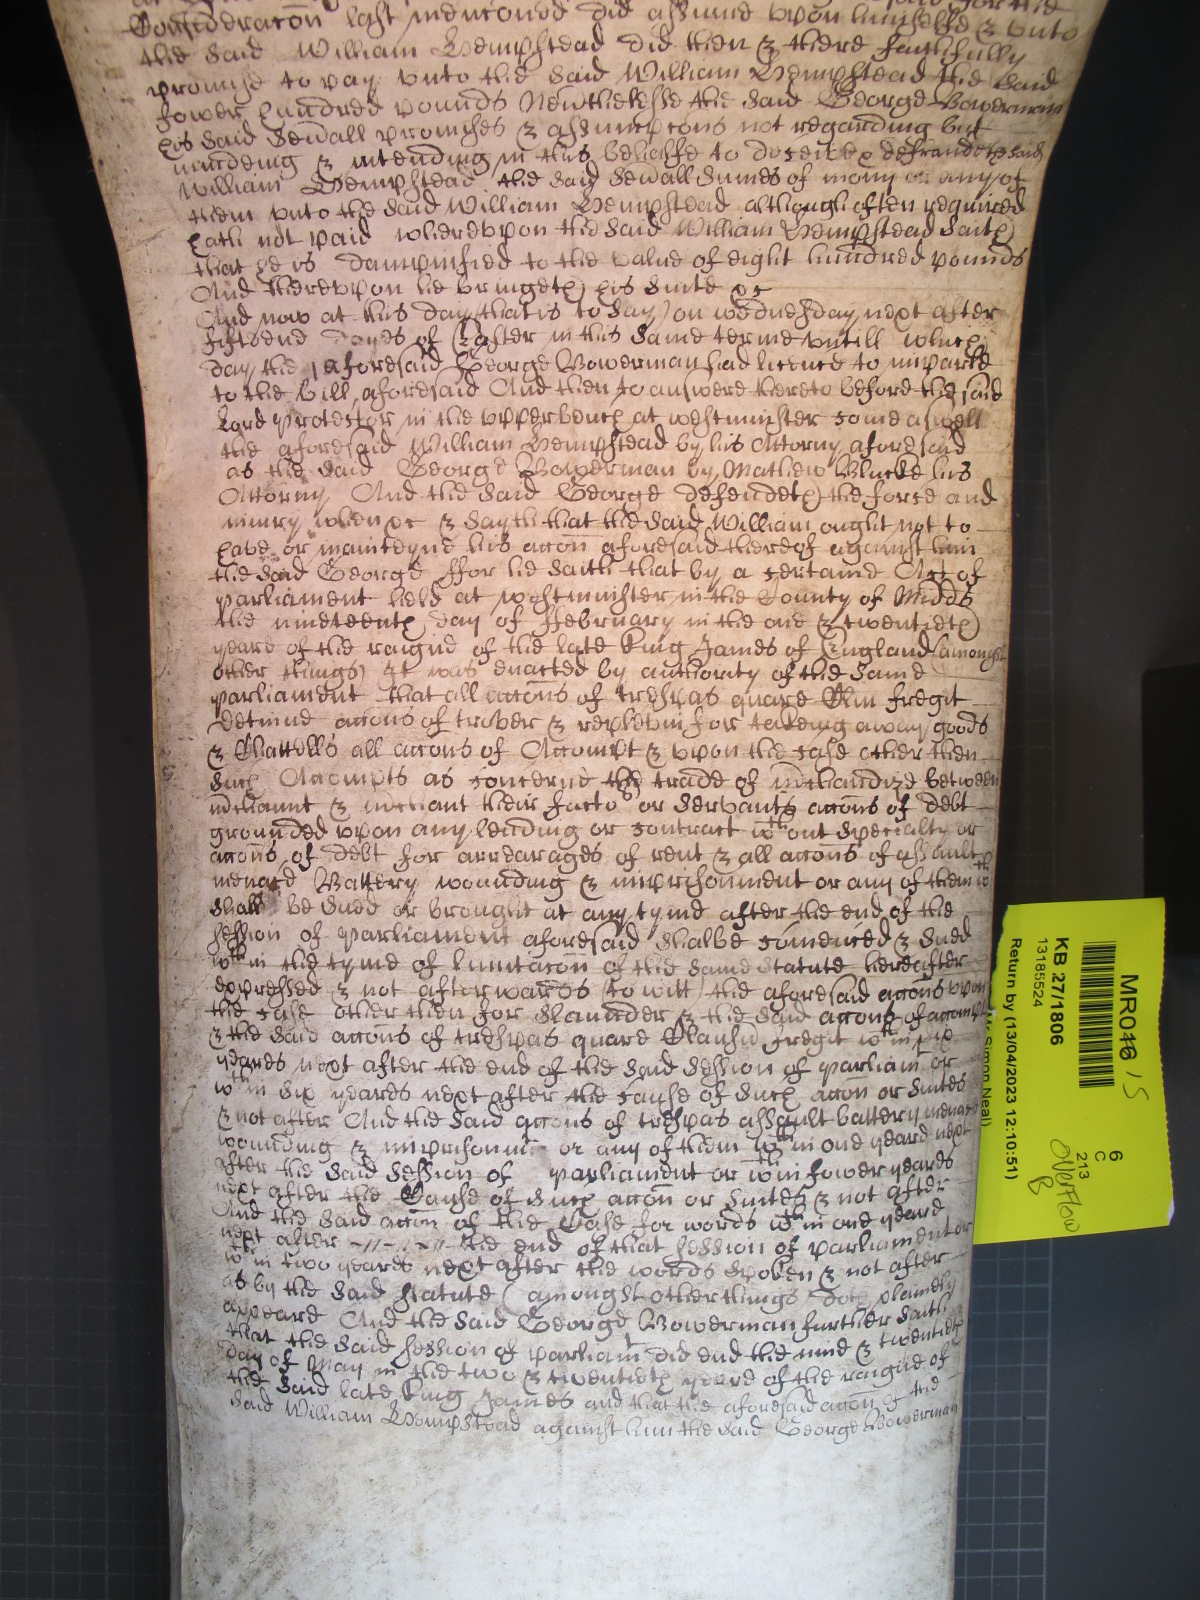 Consideracon last menconed did assume vpon himselfe & vnto
the said William Hempstead did then & there faithfully
promise to pay vnto the said William Hempstead the said
fower hundred pounds Neverthelesse the said George Bowerman
his said severall promises & assumpcons not regarding but
mindeing & intending in this behalfe to deceive & defraude the said
William Hempstead the said severall sumes of mony or any of
them vnto the said William Hempstead although often required
hath not paid wherevpon the said William Hempstead saith
that he is dampnified to the value of eight hundred pounds
And therevpon he bringeth his suite &c
And now at this day (that is to say) on wednesday next after
fifteene dayes of Easter in this same terme vntill which
day the aforesaid George Bowerman had licence to imparle
to the bill aforesaid And then to answere thereto before the said
Lord Protector in the vpper bench at westminster come aswell
the aforesaid William Hempstead by his Attorny aforesaid
as the said George Bowerman by Mathew Blucke his
Attorny And the said George defendeth the force and
iniury when &c & sayth that the said William ought not to
have or mainteyne his accon aforesaid thereof against him
the said George ffor he saith that by a certaine Act of
parliament held at westminster in the County of Midds
the nineteenth day of ffebruary in the one & twentieth
yeare of the raigne of the late King James of England (amongst
other things) It was enacted by authority of the same
parliament that all accons of trespas quare Clm fregit
detinue accons of trover & replevin for takeing away goods
& Chattells all accons of Accompt & vpon the case other then
such Accompts as concerne the trade of merchandize between
merchant & merchant their factors or servants accons of debt
grounded vpon any lending or contract wthout specialty or
accons of debt for arrearages of rent & all accons of assault
menace Battery wounding & imprisonment or any of them wch
shall be sued or brought at any tyme after the end of the
session of parliament aforesaid shalbe comenced & sued
wthin the tyme of limitacon of the same statute hereafter
expressed & not afterwards (to witt) the aforesaid accons vpon
the case other then for slaunder & the said accons of accompt
& the said accons of trespas quare Clausu fregit wthin six
yeares next after the end of the said session of parliamt or
wthin six yeares next after the cause of such accon or suites
& not after And the said accons of trespas assault battery menace
wounding & imprisonmt or any of them wthin one yeare next
after the said session of parliament or wthin fower yeares
next after the Cause of such accon or suites & not after
And the said accon of the Case for words wthin one yeare
next after the end of that session of parliament or
wthin two yeares next after the words spoken & not after
as by the said statute (amongst other things) doth plainely
appeare And the said George Bowerman further saith
that the said session of parliamt did end the nine & twentieth
day of May in the two & twentieth yeare of the raigne of
the said late King James and that the aforesaid accon of the
said William Hempstead against him the said George Bowerman
MR046 / 5
KB 27/1806
13185524
Return by (13/04/2023 12:10:51)
Mr Simon Neal)
6
C
213
overflow
B